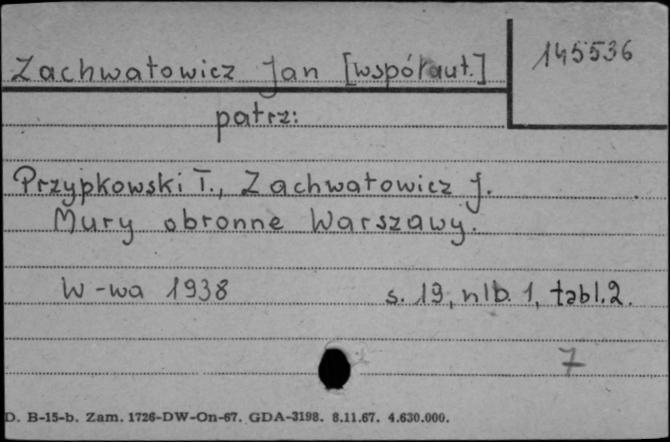 145536
Zachwatowicz Jan [współaut.]
patrz:
Przypkowski T., Zachwatowicz J.
Mury obronne Warszawy.
W-wa 1938 s. 19, nlb. 1, tabl. 2.
7
D. B-15-b. Zam. 1726-DW-On-67. GDA-3198. 8.11.67. 4.630.000.